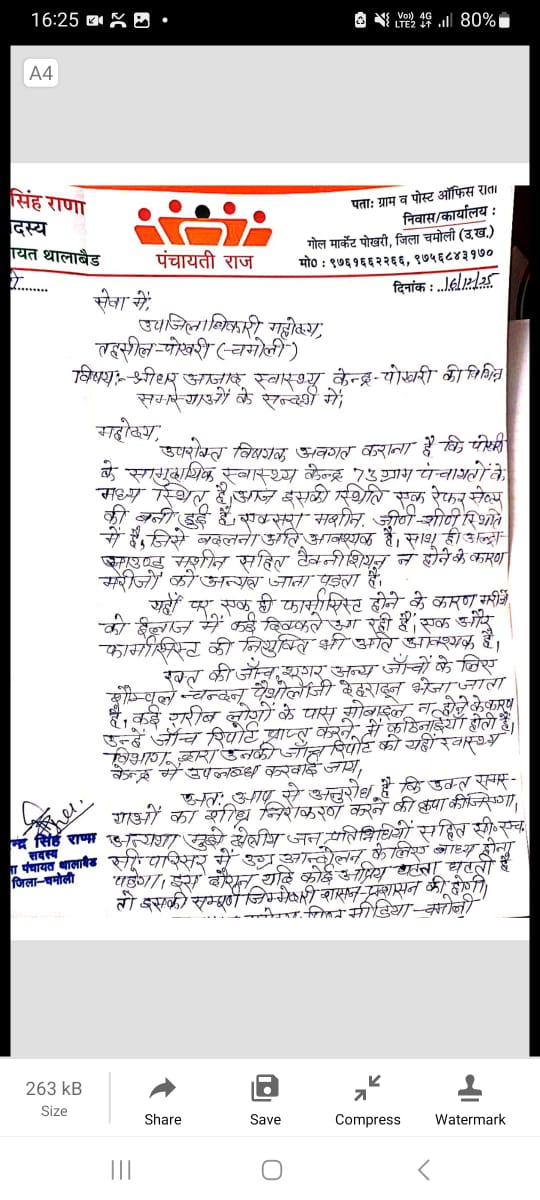 16:25
Vo) 4G
LTE2
80%
A4
सिंह राणा
दस्य
ायत थालाबैड
पंचायती राज
पता: ग्राम व पोस्ट ऑफिस राता
निवास/कार्यालय :
गोल मार्केट पोखरी, जिला चमोली (उ.ख.)
मो० : ९७६१६६२२६६, ९७५६८४३१७०
दिनांक : ..16/12/25
सेवा में,
उपजिलाधिकारी महोदय,
तहसील-पोखरी (चमोली)
विषय:- श्रीधर आजाद स्वास्थ्य केन्द्र-पोखरी की विभिन्न
समस्याओं के सन्दर्भ में,
महोदय,
उपरोक्त विषयक अवगत कराना है कि पोखरी
के सामुदायिक स्वास्थ्य केन्द्र 73 ग्राम पंचायतों के
मध्य स्थित है, आज इसकी स्थिति एक रेफर सेन्टर
की बनी हुई है, एक्सरा मशीन. जीर्ण-शीर्ण स्थिति
में है, जिसे बदलना अति आवश्यक है, साथ ही अल्ट्रा-
साउण्ड मशीन सहित टैक्नीशियन न होने के कारण
मरीजों को अन्यत्र जाना पड़ता है,
यहाँ पर एक ही फार्मासिस्ट होने के कारण मरीजों
को ईलाज में कई दिक्कते आ रही हैं, एक और
फार्मासिस्ट की नियुक्ति भी अति आवश्यक है,
रक्त की जाँच, शुगर अन्य जाँचों के लिए
सैम्पल चन्दन पैथोलॉजी देहरादून भेजा जाता
है, कई गरीब लोगों के पास मोबाइल न होने के कारण
उन्हें जाँच रिपोर्ट प्राप्त करने में कठिनाईयां होती है,
विभाग द्वारा उनकी जाँच रिपोर्ट को यहीं स्वास्थ्य
केन्द्र में उपलब्ध करवाई जाय,
अतः आप से अनुरोध है कि उक्त समस-
याओं का शीघ्र निराकरण करने की कृपा कीजिएगा,
अन्यथा मुझे क्षेत्रीय जन प्रतिनिधियों सहित सी.एच.
सी परिसर में उग्र आन्दोलन के लिए बाध्य होना
पड़ेगा, इस दौरान यदि कोई अप्रिय घटना घटती है
तो इसकी सम्पूर्ण जिम्मेदारी शासन-प्रशासन की होगी,
मीडिया-चमोली
न्द्र सिंह राणा
सदस्य
ा पंचायत थालाबैड
जिला-चमोली
263 kB
Size
Share
Save
Compress
Watermark